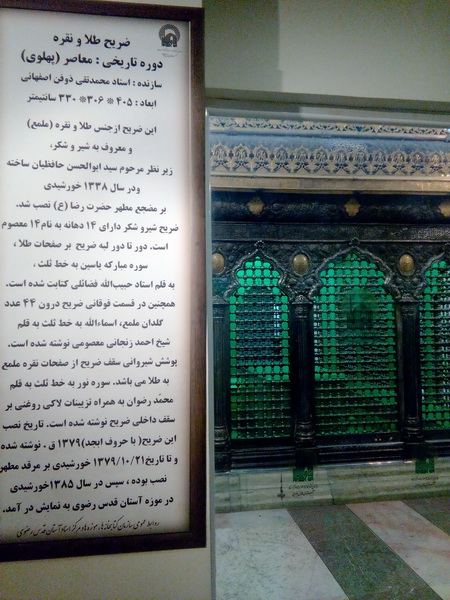 ضریح طلا و نقره
دوره تاریخی : معاصر (پهلوی)
سازنده : استاد محمدتقی ذوفن اصفهانی
ابعاد : ۴۰۵ * ۳۰۶* ۳۳۰ سانتیمتر
این ضریح ازجنس طلا و نقره (ملمع)
و معروف به شیر و شکر،
زیر نظر مرحوم سید ابوالحسن حافظیان ساخته
ودر سال ۱۳۳۸ خورشیدی
بر مضجع مطهر حضرت رضا (ع) نصب شد.
ضریح شیرو شکر دارای ۱۴ دهانه به نام۱۴ معصوم
است. دور تا دور لبه ضریح بر صفحات طلا ،
سوره مبارکه یاسین به خط ثلث ،
به قلم استاد حبیب‌الله فضائلی کتابت شده است.
همچنین در قسمت فوقانی ضریح درون ۴۴ عدد
گلدان ملمع، اسماءالله به خط ثلث به قلم
شیخ احمد زنجانی معصومی نوشته شده است.
پوشش شیروانی سقف ضریح از صفحات نقره ملمع
به طلا می باشد. سوره نور به خط ثلث به قلم
محمد رضوان به همراه تزیینات لاکی روغنی بر
سقف داخلی ضریح نوشته شده است. تاریخ نصب
این ضریح( با حروف ابجد)۱۳۷۹ ق . نوشته شده
و تا تاریخ۱۳۷۹/۱۰/۲۱ خورشیدی بر مرقد مطهر
نصب بوده ، سپس در سال ۱۳۸۵خورشیدی
در موزه آستان قدس رضوی به نمایش در آمد.
روابط عمومی سازمان کتابخانه‌ها، موزه‌ها و مرکز اسناد آستان قدس رضوی